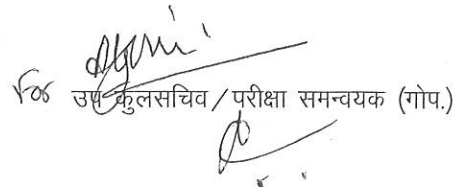 For उप कुलसचिव / परीक्षा समन्वयक (गोप.)